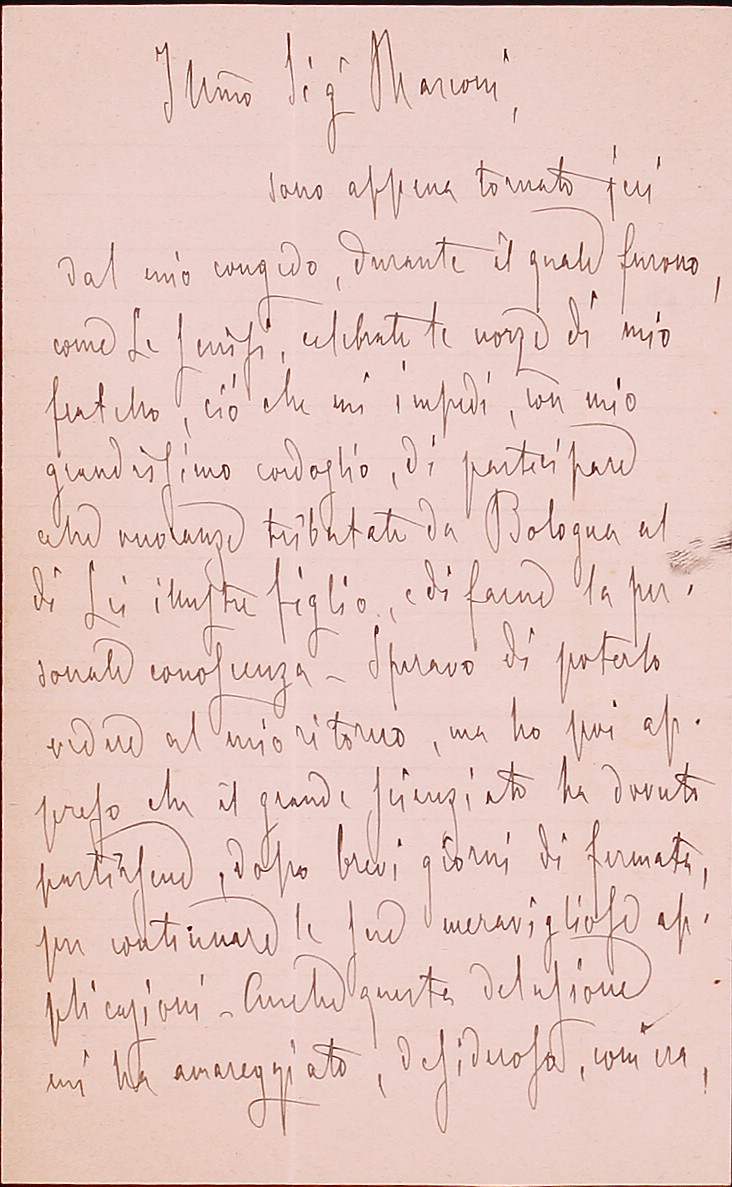 Illmo Sigr Marconi,
sono appena tornato jeri
dal mio congedo, durante il quale furono,
come Le scrissi, celebrate le nozze di mio
fratello, ciò che mi impedì, con mio
grandissimo cordoglio, di partecipare
alle onoranze tributate da Bologna al
di Lei illustre figlio, e di farne la per-
sonale conoscenza - Speravo di poterlo
vedere al mio ritorno, ma ho poi ap-
preso che il grande scienziato ha dovuto
partirsene, dopo brevi giorni di fermata,
per continuare le sue meravigliose ap-
plicazioni - Anche questa delusione
mi ha amareggiato, desideroso, com'era,